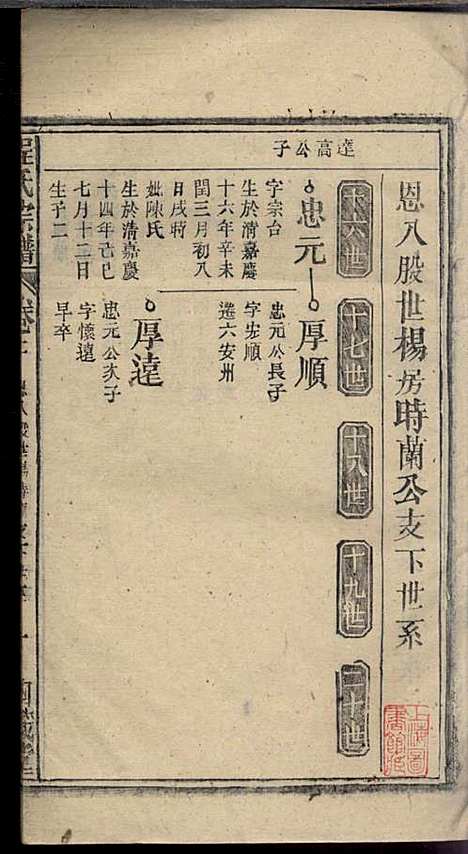 恩八股世楊房時蘭公支下世系
十六世
十七世
十八世
十九世
二十世
達高公子
忠元
厚順
字宗台
生於清嘉慶
十六年辛未
閏三月初八
日戌時
妣陳氏
生於清嘉慶
十四年己巳
七月十二日
生子二
忠元公長子
字宏順
遷六安州
厚遠
忠元公次子
字懷遠
早卒
氏宗譜
上海圖書館藏